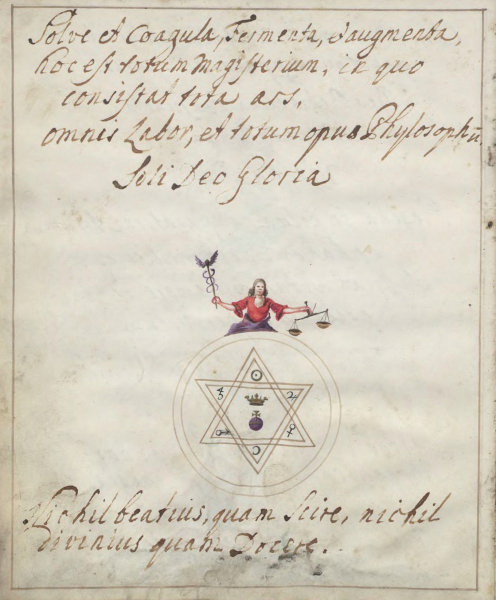 Solve et Coagula, Fermenta, et augmenta,
hoc est totum Magisterium, in quo
consistat tota ars,
omnis Labor, et totum opus Phylosophū.
Soli Deo Gloria
Nichil beatius, quam Scire, nichil
divinius quam Docere.